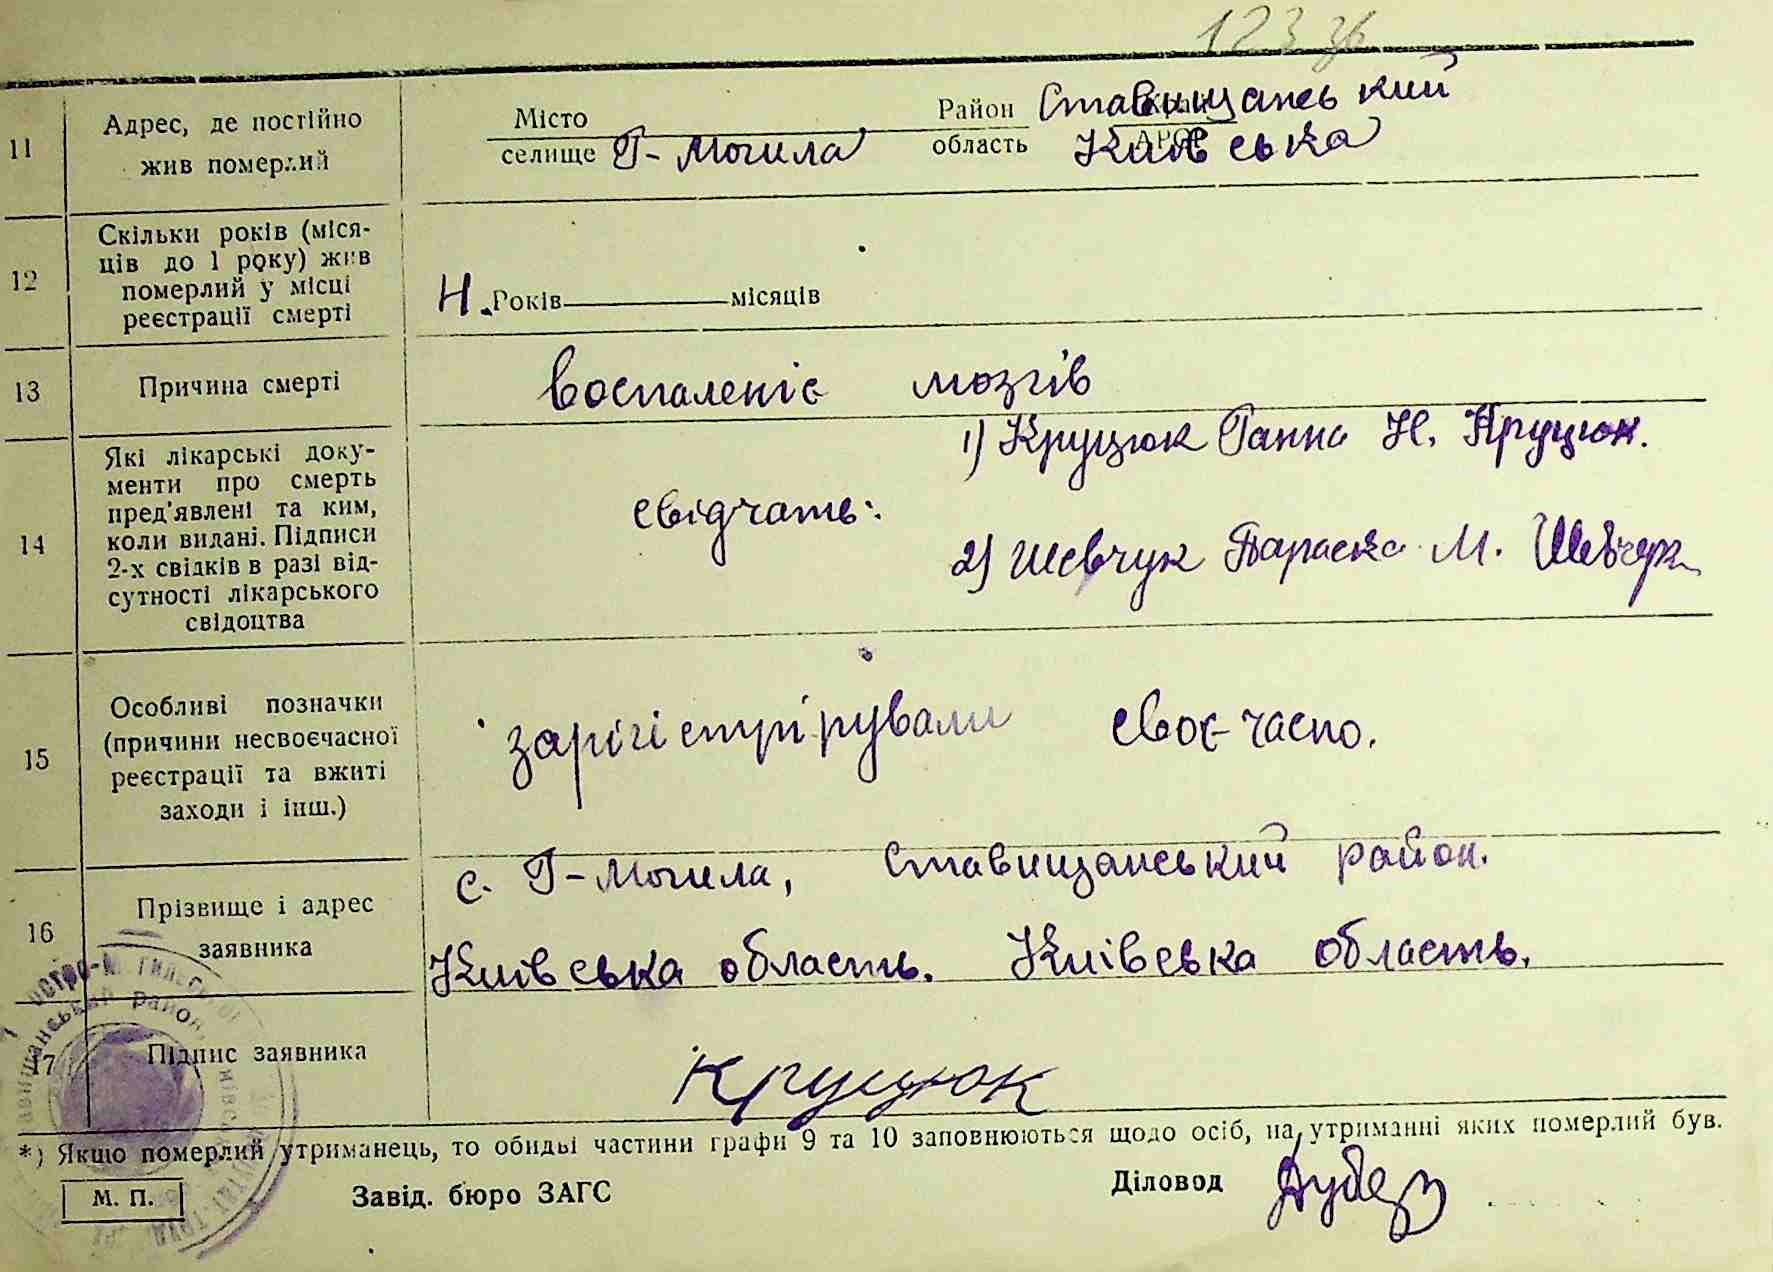 123 36
11
Адрес, де постійно
жив померлий
Місто
селище Г-Могила
Район Ставищанський
область Київська
АРСР
12
Скільки років (міся-
ців до 1 року) жив
померлий у місці
реєстрації смерті
Років місяців
13
Причина смерті
Воспаленіє мозгів
14
Які лікарські доку-
менти про смерть
пред'явлені та ким,
коли видані. Підписи
2-х свідків в разі від-
сутності лікарського
свідоцтва
свідчать:
1) Круцюк Ганна Н. Круцюк.
2) Шевчук Параска М. Шевчук
15
Особливі позначки
(причини несвоєчасної
реєстрації та вжиті
заходи і інш.)
зарігістрірували своє-часно.
16
Прізвище і адрес
заявника
с. Г-Могила, Ставищанський район.
Київська область. Київська область.
17
Підпис заявника
Круцюк
*) Якщо померлий утриманець, то обидві частини графи 9 та 10 заповнюються щодо осіб, на утриманні яких померлий був.
М. П.
Завід. бюро ЗАГС
Діловод